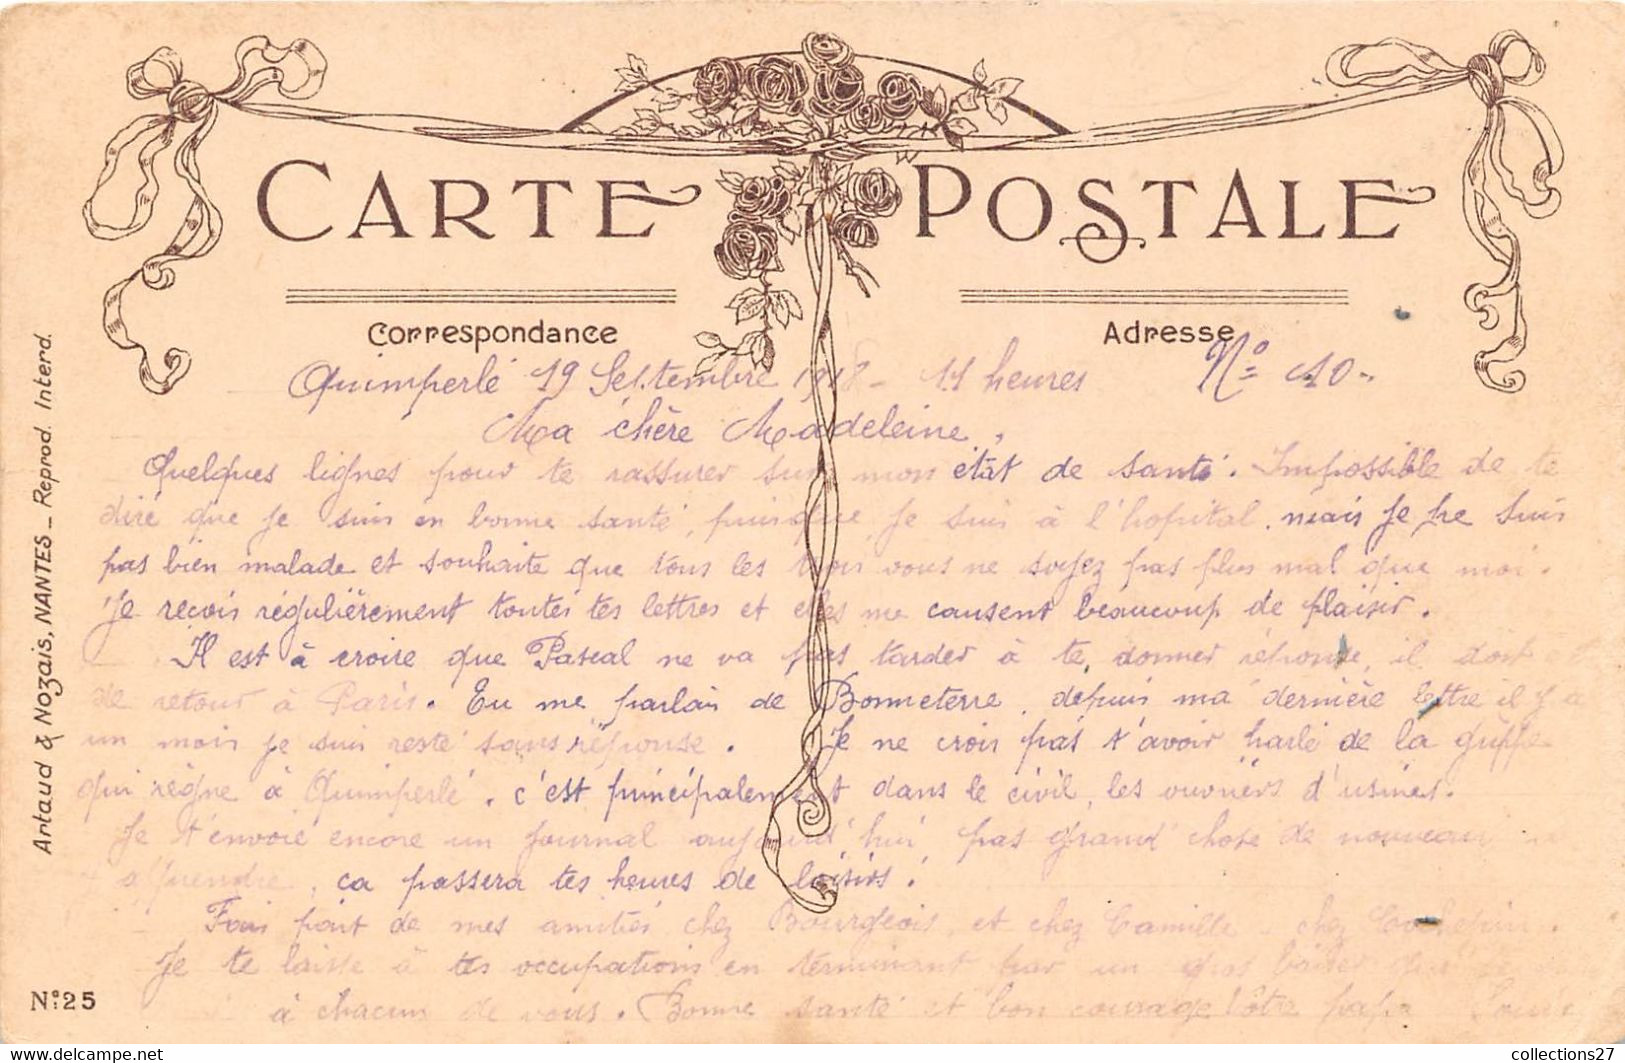 CARTE POSTALE
Correspondance
Adresse
Quimperlé 19 Septembre 1918 - 11 heures Nº 10 -
Ma chère Madeleine,
Quelques lignes pour te rassurer sur mon état de santé. Impossible de te
dire que je suis en bonne santé, puisque je suis à l'hopital, mais je ne suis
pas bien malade et souhaite que tous les trois vous ne soyez pas plus mal que moi.
Je reçois régulièrement toutes tes lettres et elles me causent beaucoup de plaisir.
Il est à croire que Pascal ne va pas tarder à te donner réponse, il doit
de retour à Paris. Tu me parlais de Bonneterre, depuis ma dernière lettre il y a
un mois je suis resté sans réponse. Je ne crois pas t'avoir parlé de la grippe
qui règne à Quimperlé, c'est principalement dans le civil, les ouvriers d'usines.
Je t'envoie encore un journal aujourd'hui, pas grand chose de nouveau
apprendre, ça passera tes heures de loisirs.
Fais part de mes amitiés chez Bourgeois et chez Camille - chez
Je te laisse à tes occupations en terminant par un gros baiser
à chacun de vous. Bonne santé et bon courage Vôtre papa Louis
Artaud & Nozais, NANTES _ Reprod. Interd.
Nº 25
collections27